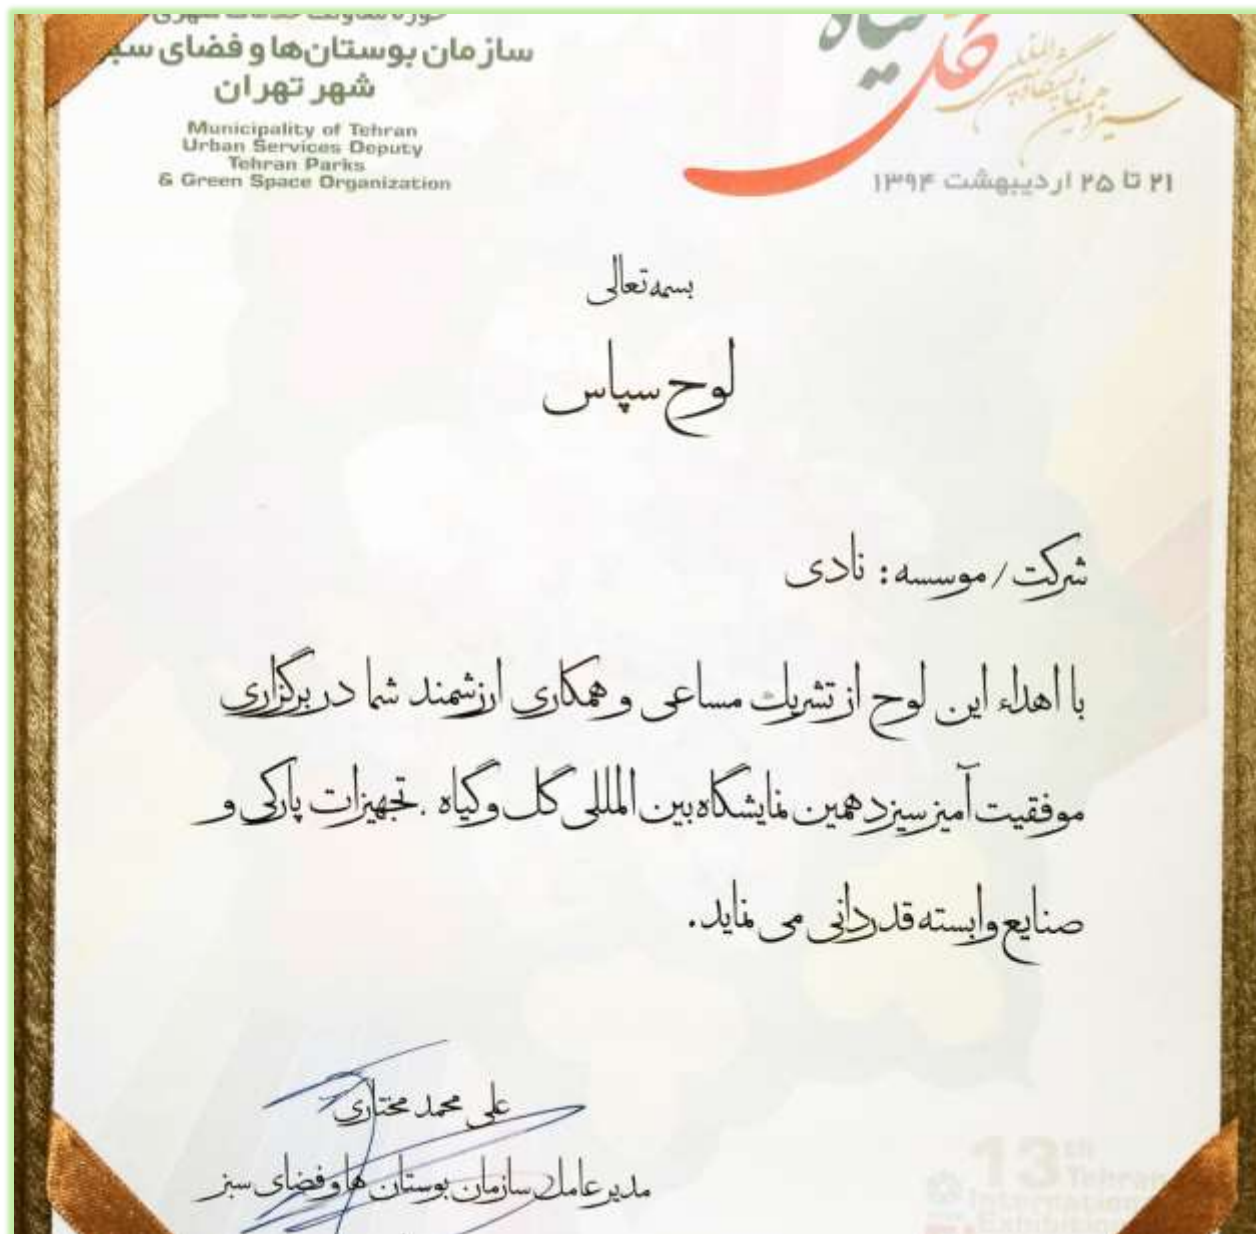 حوزه معاونت خدمات شهری
سازمان بوستان‌ها و فضای سبز
شهر تهران
Municipality of Tehran
Urban Services Deputy
Tehran Parks
& Green Space Organization
گل گیاه
سیزدهمین نمایشگاه بین المللی
۲۱ تا ۲۵ اردیبهشت ۱۳۹۴
بسمه تعالی
لوح سپاس
شرکت / موسسه : نادی
با اهداء این لوح از تشریک مساعی و همکاری ارزشمند شما در برگزاری
موفقیت آمیز سیزدهمین نمایشگاه بین المللی گل و گیاه . تجهیزات پارکی و
صنایع وابسته قدردانی می نماید.
علی محمد مختاری
مدیر عامل سازمان بوستان ها و فضای سبز
13th
Tehran
International
Exhibition